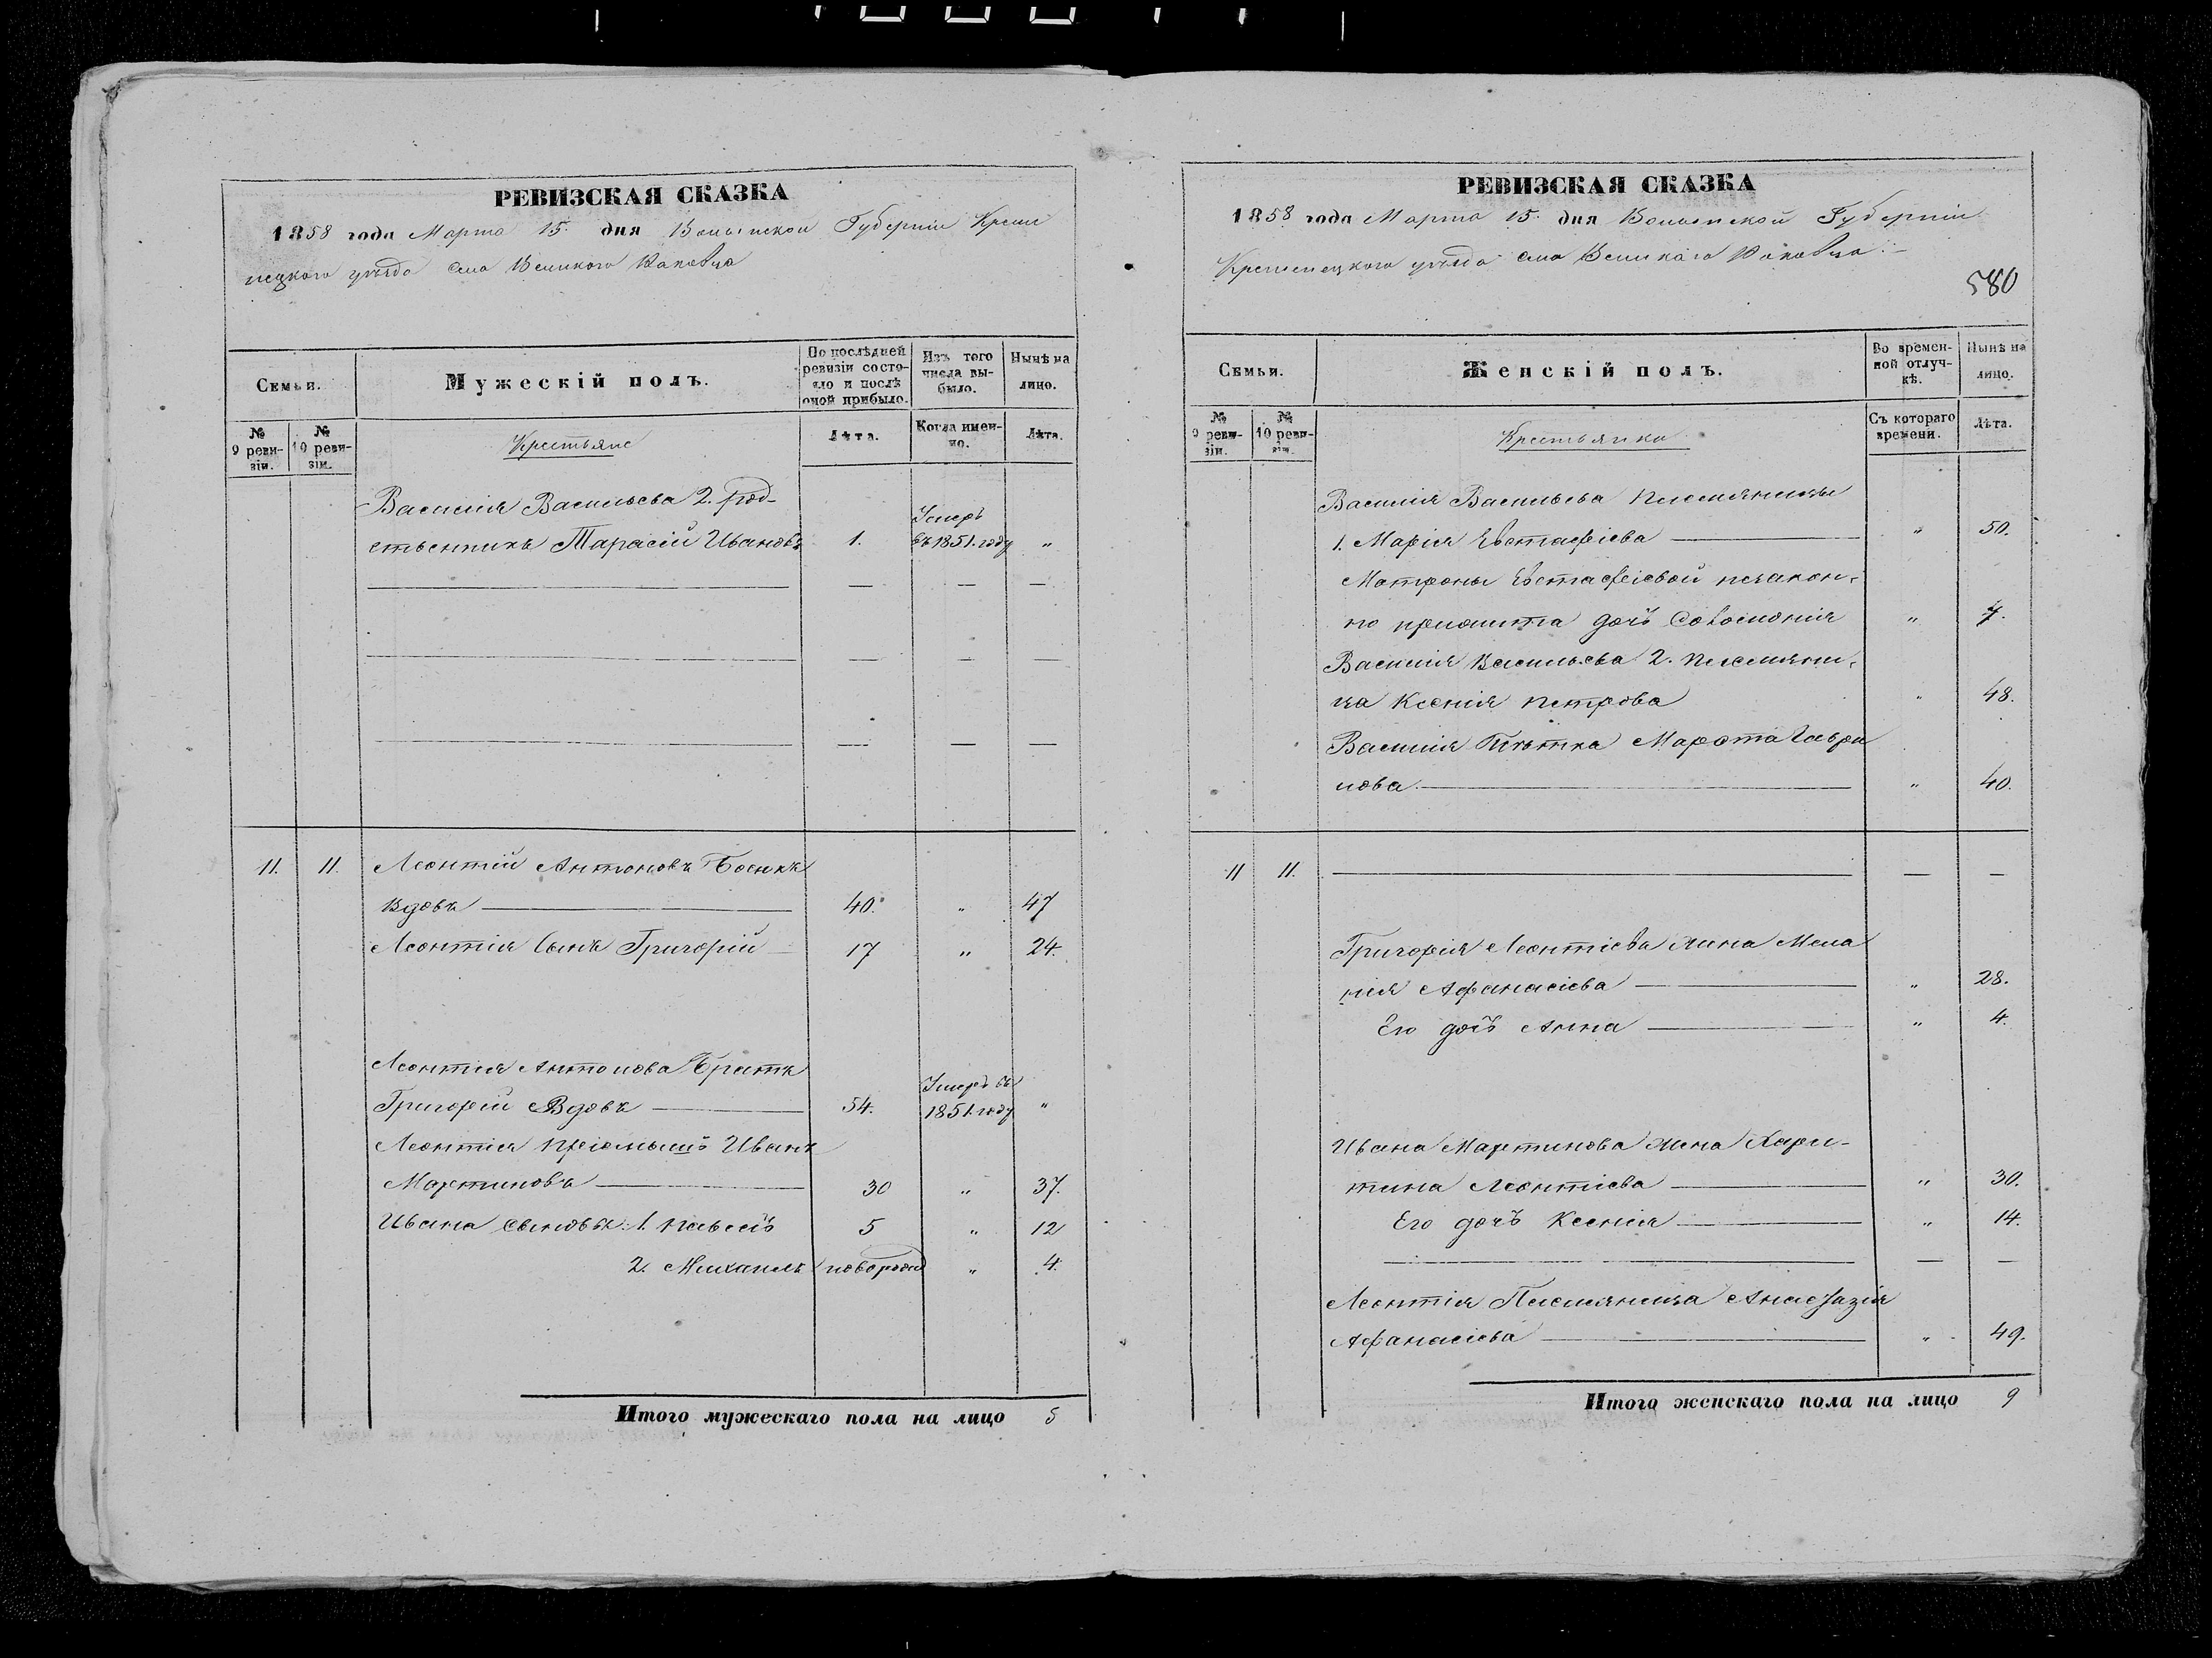 РЕВИЗСКАЯ СКАЗКА
1858 года Марта 15. дня Волынской Губерніи Креме
нецкого уѣзда села Великого Раковца
Семьи.
Мужескій полъ.
По послѣдней ревизіи состояло и послѣ оной прибыло.
Изъ того числа выбыло.
Нынѣ на лицо.
№ 9 ревизіи.
№ 10 ревизіи.
Крестьяне
Лѣта.
Когда именно.
Лѣта.
Василія Васильева 2. род-
ственникъ Тарасій Ивановъ 1. Умеръ въ 1851. году "
11. 11. Леонтій Антоновъ
Вдовъ 40. " 47
Леонтія Сынъ Григорій 17 " 24.
Леонтія Антонова Братъ
Григорій Вдовъ 54. Умеръ въ 1851. году "
Леонтія пріемышъ Иванъ
Мартиновъ 30 " 37.
Ивана сыновья: 1. Павелъ 5 " 12
2. Михаилъ новорожд " 4.
Итого мужескаго пола на лицо 5
РЕВИЗСКАЯ СКАЗКА
1858 года Марта 15. дня Волынской Губерніи
Кременецкого уѣзда села Великаго Раковца
580
Семьи.
Женскій полъ.
Во временной отлучкѣ.
Нынѣ на лицо.
№ 9 ревизіи.
№ 10 ревизіи.
Крестьянки
Съ котораго времени.
Лѣта.
Василія Васильева племянницы
1. Марія Евстафіева " 50.
Матроны Евстафіевой незакон-
но прижита дочь Соломонія " 7.
Василія Васильева 2. племянни-
ца Ксенія Петрова " 48.
Василія Тіотка Марфта Гаври
лова " 40.
11 11.
Григорія Леонтіева жина Мела
нія Афанасіева " 28.
Его дочь Анна " 4.
Ивана Мартинова жина Хари-
тина Леонтіева " 30.
Его дочь Ксенія " 14.
Леонтія Племянница Анастазія
Афанасіева " 49.
Итого женскаго пола на лицо 9